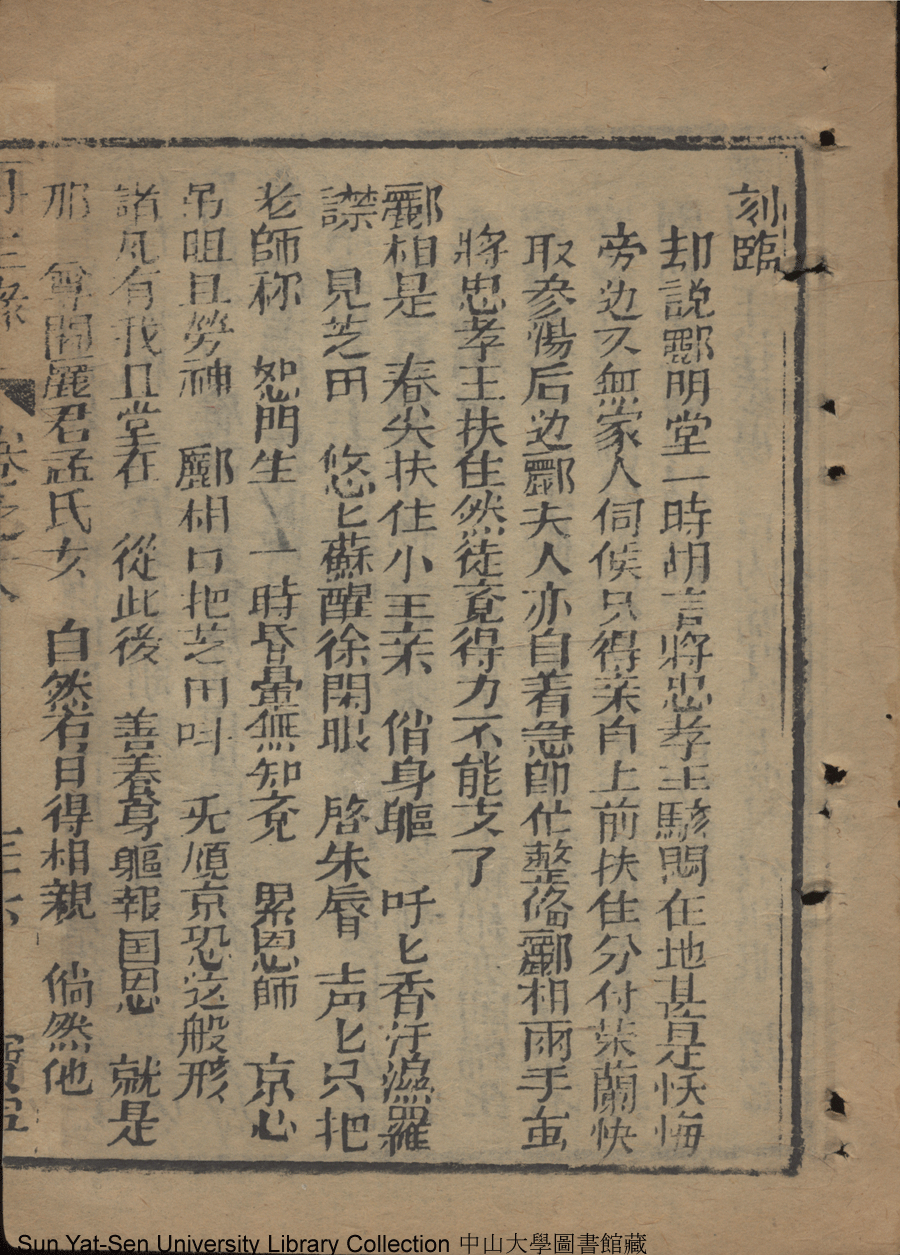 刻臨
却説酈明堂一時胡言將忠孝王駭悶在地甚是恢悔
旁边又無家人伺候只得亲自上前扶住分付荣蘭快
取参湯后边酈夫人亦自着急卽忙整俻酈相兩手
將忠孝王扶住然徒竟得力不能支了
酈相是　春尖扶住小王亲　俏身軀　吁匕香汗濕羅
襟　見芝田　悠匕蘇醒徐閃眼　啓朱唇　声匕只把
老師称　恕門生　一時昏暈無知竟　累恩師　京心
吊咀且劳神　酈相口把芝田叫　旡順京恐这般形
諸凡有我且堂在　從此後　善養身軀報国恩　就是
那　尊閫麗君孟氏女　自然有日得相親　倘然他
再生緣　卷之
Sun Yat-Sen University Library Collection 中山大學圖書館藏